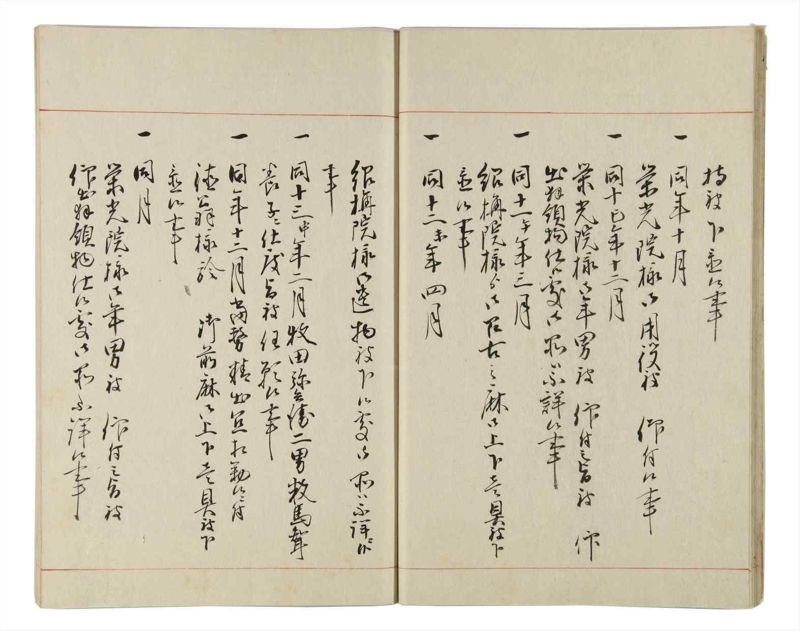 持被下置候事
一 同年十月
栄光院様御用役被 仰付候事
一 同十巳年十二月
栄光院様御年男被 仰付之旨被 仰
出拝領物仕候処御品不詳候事
一 同十一午年三月
紹隆院様御召古之麻御上下壱具被下
置候事
一 同十二未年四月
院様御遺物被下候処御品不詳
事
一 同十三申年二月牧田弥 二男数馬聟
養子仕度旨被任願候事
一 同年十二月 勢精出相勤候ニ付
様於 御前麻御上下壱具被下
置候事
一 同月
栄光院様御年男被 仰付之旨被
仰出拝領物仕候処御品不詳候事